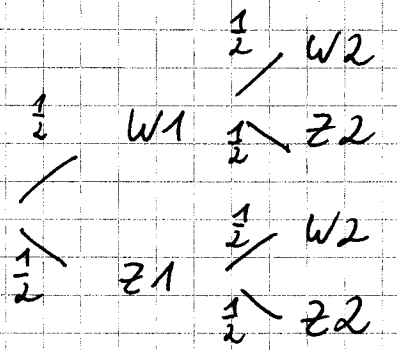 1/2 W2
1/2 W1 1/2 Z2
1/2 W2
1/2 Z1
1/2 Z2